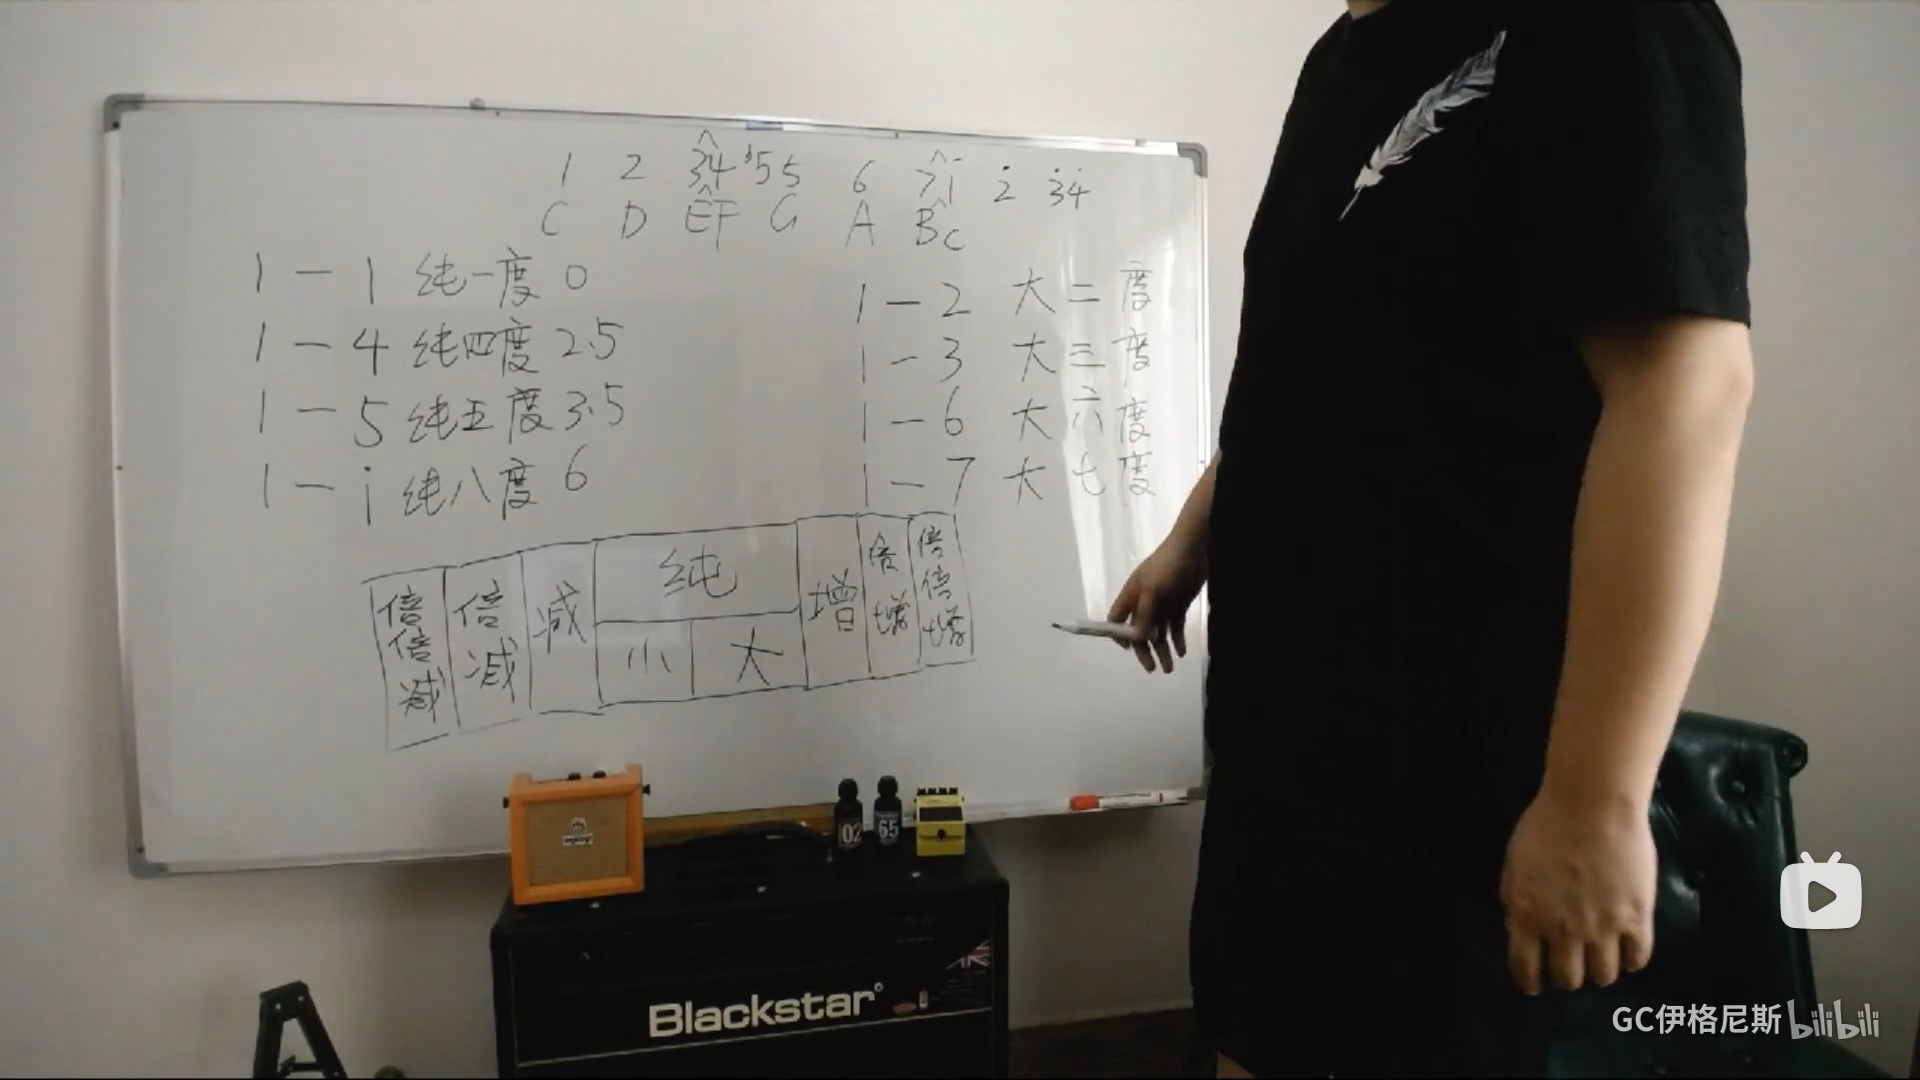 1 2 34 b5 5 6 7 i 2 34
C D EF G A B C
1 — 1 纯一度 0
1 — 4 纯四度 2.5
1 — 5 纯五度 3.5
1 — i 纯八度 6
1 — 2 大二度
1 — 3 大三度
1 — 6 大六度
1 — 7 大七度
倍倍减 倍减 减 纯 增 倍增 倍倍增
小 大
02 65
Blackstar
GC伊格尼斯 bilibili